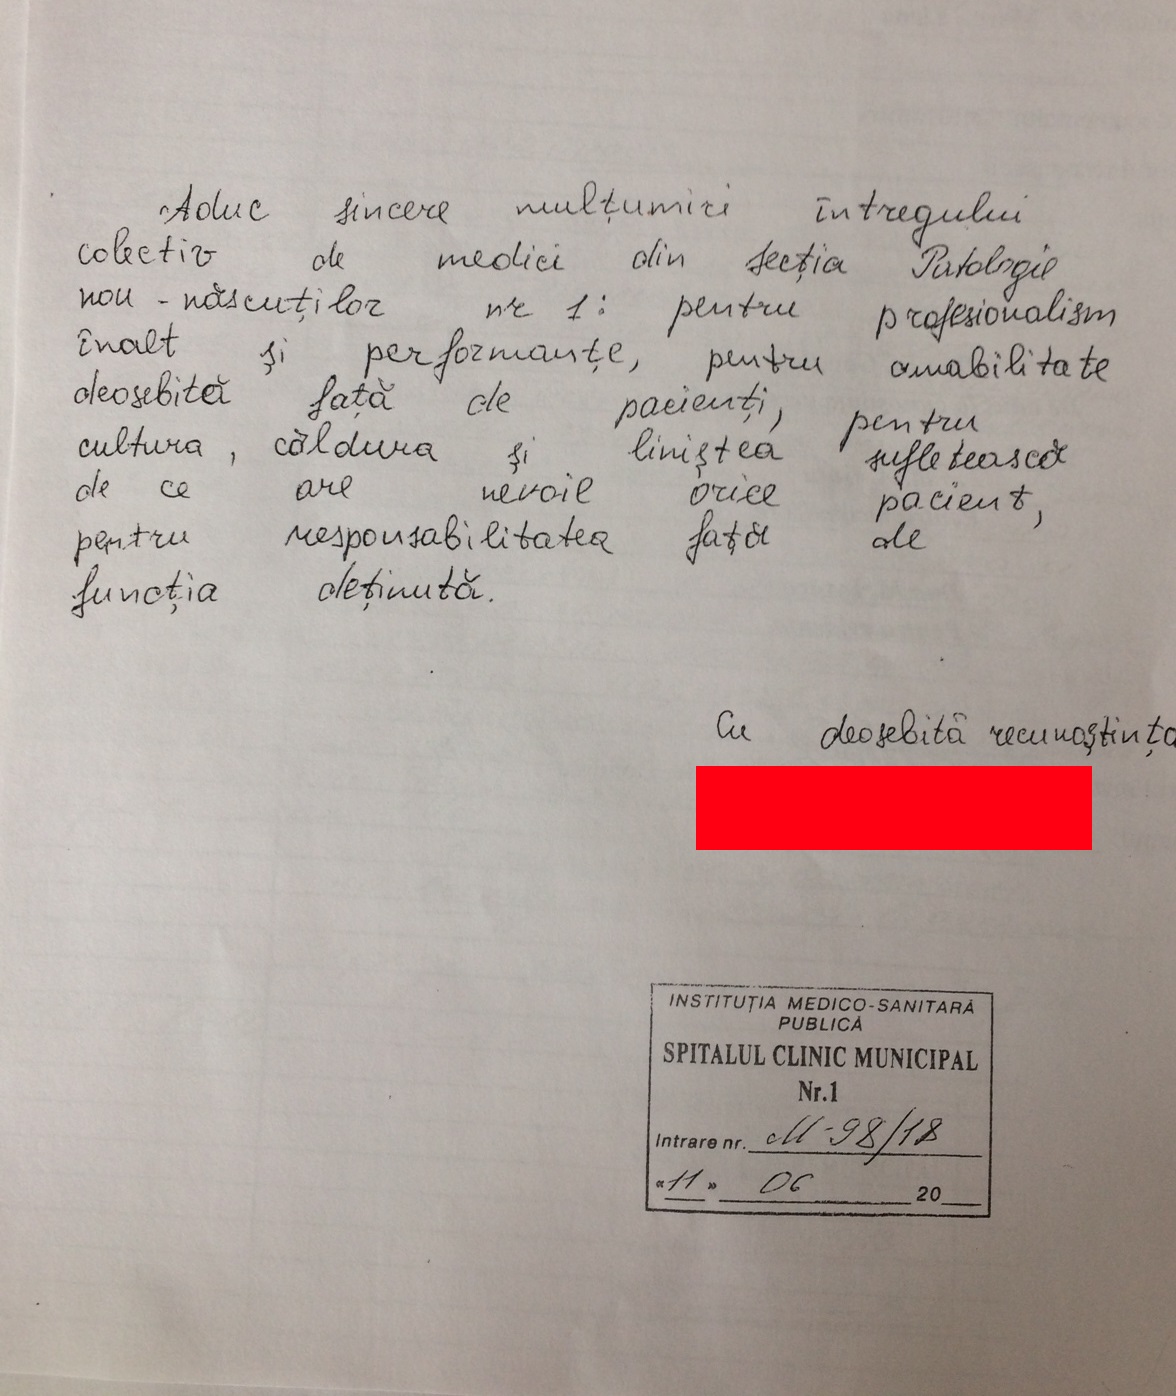 Aduc sincere mulțumiri întregului
colectiv de medici din secția Patologie
nou-născuților nr 1: pentru profesionalism
înalt și performanțe, pentru amabilitate
deosebită față de pacienți, pentru
cultura, căldura și liniștea sufletească
de ce are nevoie orice pacient,
pentru responsabilitatea față de
funcția deținută.
Cu deosebită recunoștința
INSTITUȚIA MEDICO-SANITARĂ
PUBLICĂ
SPITALUL CLINIC MUNICIPAL
Nr.1
Intrare nr. M-98/18
«11» 06 20